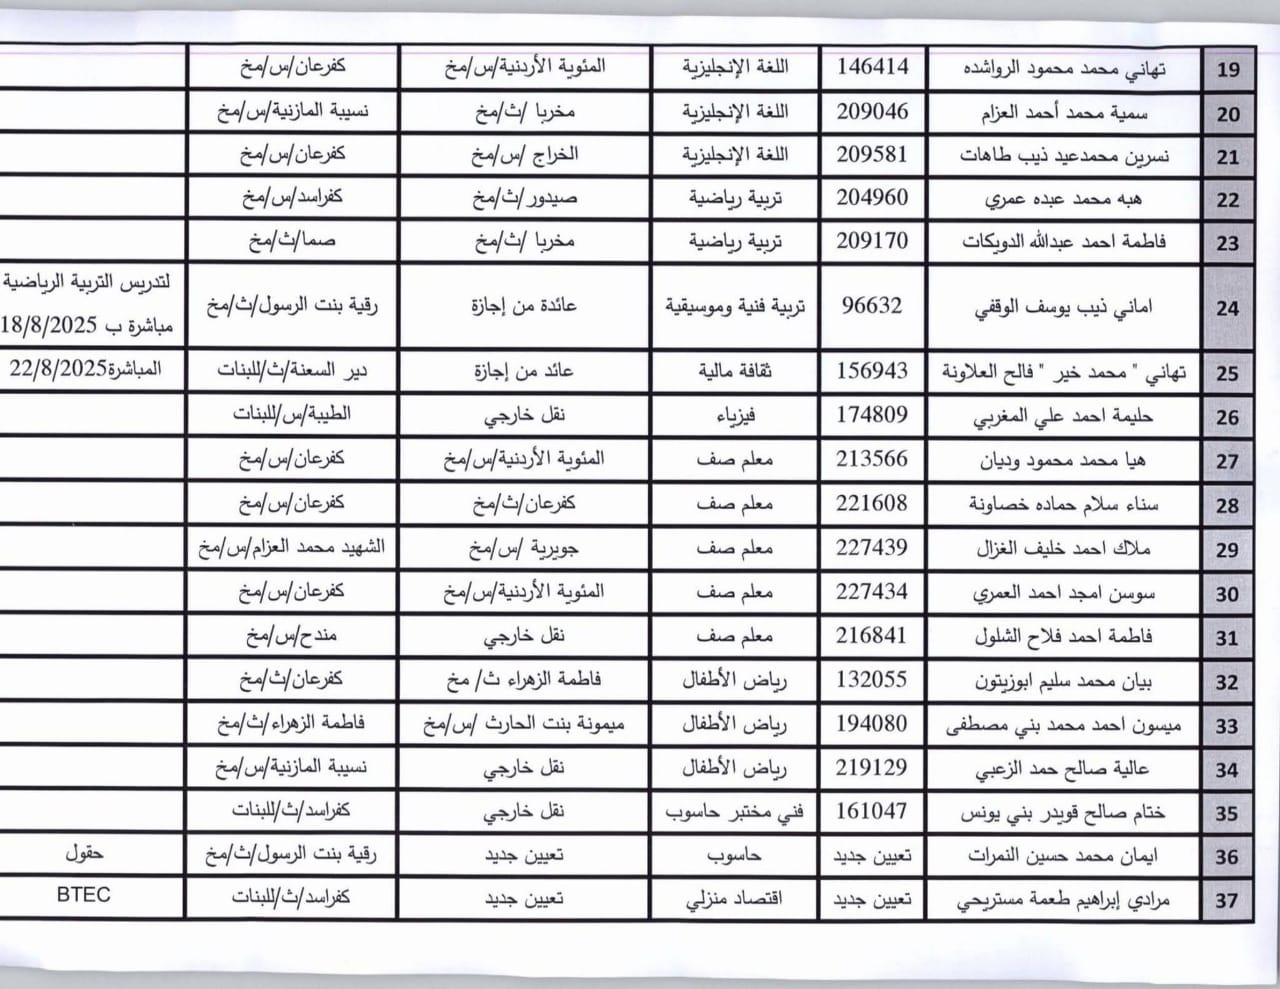 19 تهاني محمد محمود الرواشده 146414 اللغة الإنجليزية المئوية الأردنية/س/مخ كفرعان/س/مخ
20 سمية محمد أحمد العزام 209046 اللغة الإنجليزية مخربا /ث/مخ نسيبة المازنية/س/مخ
21 نسرين محمدعيد ذيب طاهات 209581 اللغة الإنجليزية الخراج /س/مخ كفرعان/س/مخ
22 هبه محمد عبده عمري 204960 تربية رياضية صيدور/ث/مخ كفراسد/س/مخ
23 فاطمة احمد عبدالله الدويكات 209170 تربية رياضية مخربا /ث/مخ صما/ث/مخ
24 اماني ذيب يوسف الوقفي 96632 تربية فنية وموسيقية عائدة من إجازة رقية بنت الرسول/ث/مخ لتدريس التربية الرياضية
مباشرة ب 18/8/2025
25 تهاني " محمد خير " فالح العلاونة 156943 ثقافة مالية عائد من إجازة دير السعنة/ث/للبنات المباشرة22/8/2025
26 حليمة احمد علي المغربي 174809 فيزياء نقل خارجي الطيبة/س/للبنات
27 هيا محمد محمود وديان 213566 معلم صف المئوية الأردنية/س/مخ كفرعان/س/مخ
28 سناء سلام حماده خصاونة 221608 معلم صف كفرعان/ث/مخ كفرعان/س/مخ
29 ملاك احمد خليف الغزال 227439 معلم صف جويرية /س/مخ الشهيد محمد العزام/س/مخ
30 سوسن امجد احمد العمري 227434 معلم صف المئوية الأردنية/س/مخ كفرعان/س/مخ
31 فاطمة احمد فلاح الشلول 216841 معلم صف نقل خارجي مندح/س/مخ
32 بيان محمد سليم ابوزيتون 132055 رياض الأطفال فاطمة الزهراء ث/ مخ كفرعان/ث/مخ
33 ميسون احمد محمد بني مصطفى 194080 رياض الأطفال ميمونة بنت الحارث /س/مخ فاطمة الزهراء/ث/مخ
34 عالية صالح حمد الزعبي 219129 رياض الأطفال نقل خارجي نسيبة المازنية/س/مخ
35 ختام صالح قويدر بني يونس 161047 فني مختبر حاسوب نقل خارجي كفراسد/ث/للبنات
36 ايمان محمد حسين النمرات تعيين جديد حاسوب تعيين جديد رقية بنت الرسول/ث/مخ حقول
37 مرادي إبراهيم طعمة مستريحي تعيين جديد اقتصاد منزلي تعيين جديد كفراسد/ث/للبنات BTEC